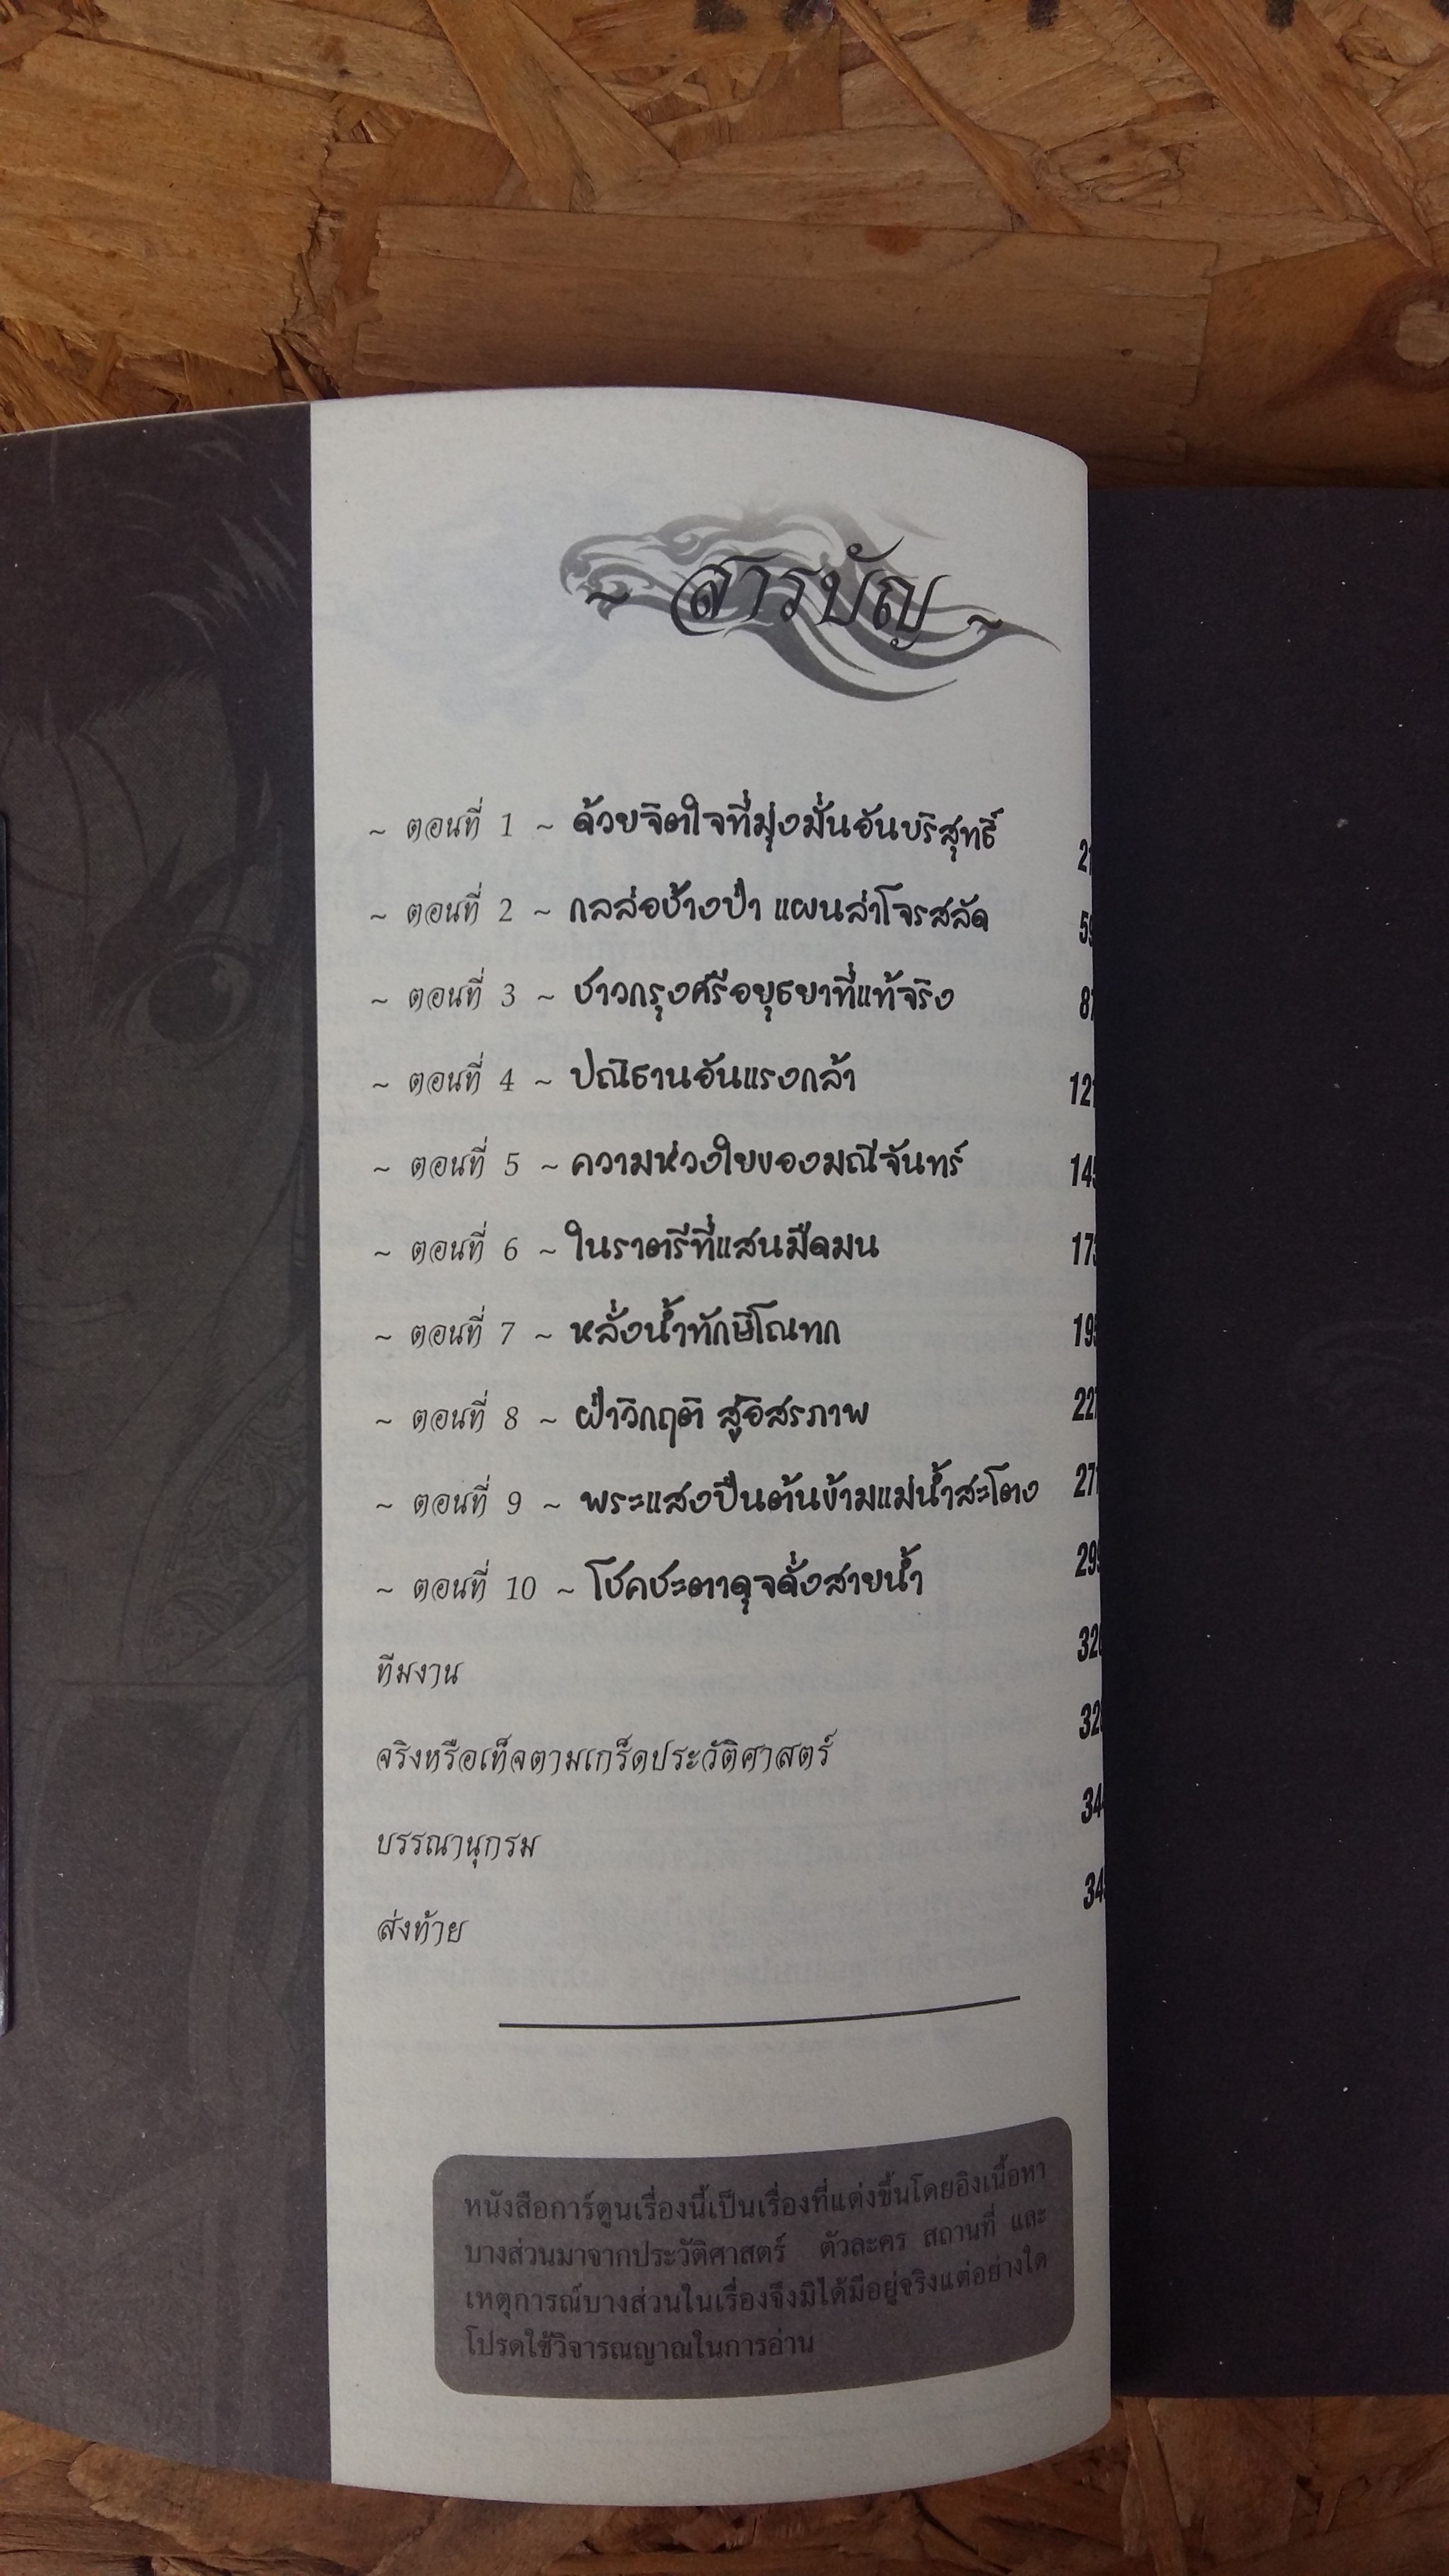 ~ สารบัญ ~
~ ตอนที่ 1 ~ ด้วยจิตใจที่มุ่งมั่นอันบริสุทธิ์
~ ตอนที่ 2 ~ กลล่อช้างป่า แผนล่าโจรสลัด
~ ตอนที่ 3 ~ ชาวกรุงศรีอยุธยาที่แท้จริง
~ ตอนที่ 4 ~ ปณิธานอันแรงกล้า
~ ตอนที่ 5 ~ ความห่วงใยของมณีจันทร์
~ ตอนที่ 6 ~ ในราตรีที่แสนมืดมน
~ ตอนที่ 7 ~ หลั่งน้ำทักษิโณทก
~ ตอนที่ 8 ~ ฝ่าวิกฤติ สู่อิสรภาพ
~ ตอนที่ 9 ~ พระแสงปืนต้นข้ามแม่น้ำสะโตง
~ ตอนที่ 10 ~ โชคชะตาดุจดั่งสายน้ำ
ทีมงาน
จริงหรือเท็จตามเกร็ดประวัติศาสตร์
บรรณานุกรม
ส่งท้าย
หนังสือการ์ตูนเรื่องนี้เป็นเรื่องที่แต่งขึ้นโดยอิงเนื้อหา
บางส่วนมาจากประวัติศาสตร์ ตัวละคร สถานที่ และ
เหตุการณ์บางส่วนในเรื่องจึงมิได้มีอยู่จริงแต่อย่างใด
โปรดใช้วิจารณญาณในการอ่าน